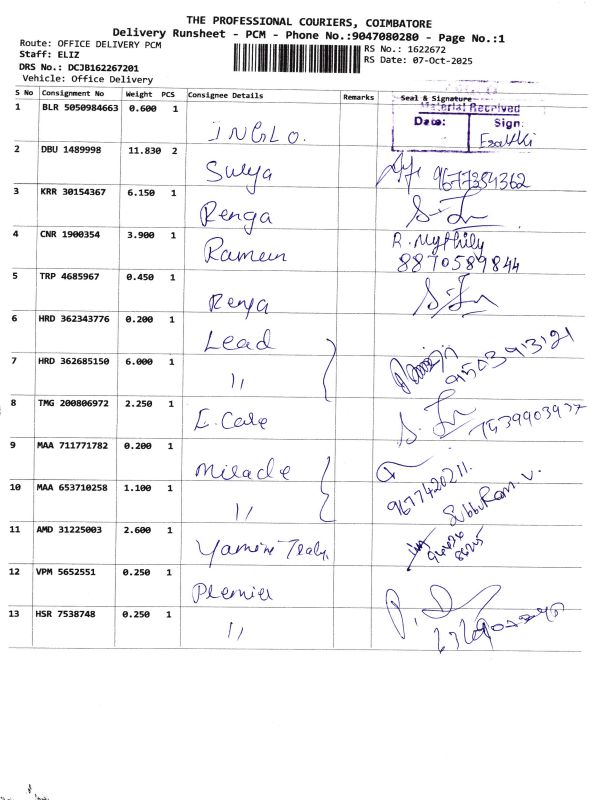 THE PROFESSIONAL COURIERS, COIMBATORE
Delivery Runsheet - PCM - Phone No.:9047080280 - Page No.:1
Route: OFFICE DELIVERY PCM
Staff: ELIZ
RS No.: 1622672
RS Date: 07-Oct-2025
DRS No.: DCJB162267201
Vehicle: Office Delivery
S No Consignment No Weight PCS Consignee Details Remarks Seal & Signature
Material Received
Date: Sign:
1 BLR 5050984663 0.600 1 INGLO.
2 DBU 1489998 11.830 2 Surya 9677354362
3 KRR 30154367 6.150 1 Renga
4 CNR 1900354 3.900 1 R. Mythily
8870589844
5 TRP 4685967 0.450 1 Renga
6 HRD 362343776 0.200 1 Lead
7 HRD 362685150 6.000 1 " 9503913121
8 TMG 200806972 2.250 1 E. Care
9 MAA 711771782 0.200 1 Miracle
9677420211.
10 MAA 653710258 1.100 1 " Subbu Ram. V.
11 AMD 31225003 2.600 1
12 VPM 5652551 0.250 1 Premier
13 HSR 7538748 0.250 1 "